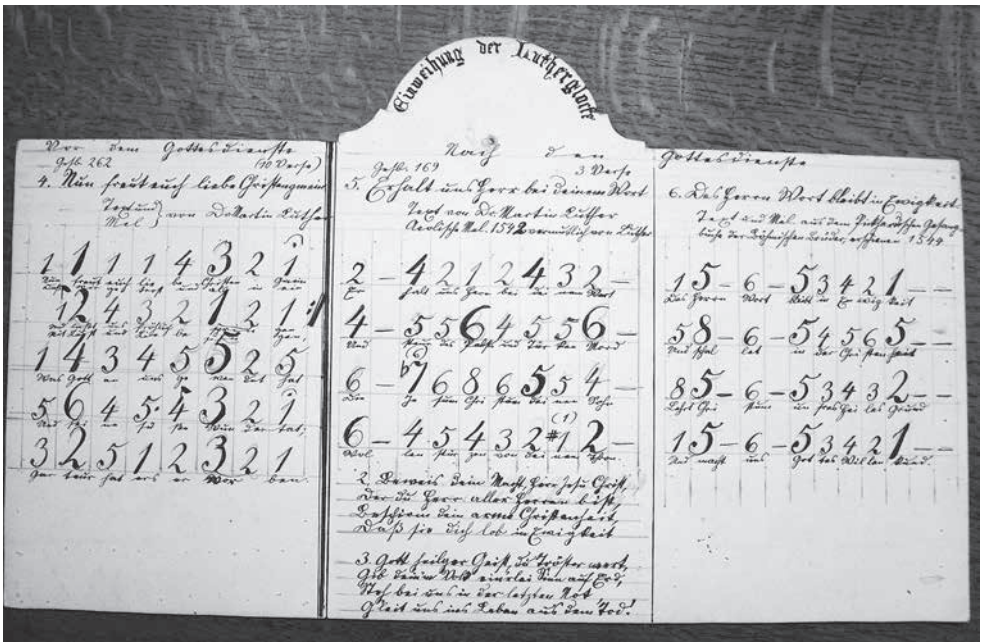 Einweihung der Lutherglocke
Vor dem Gottesdienste
Gesb. 262 (10 Verse)
4. Nun freut euch liebe Christengmein
Text und Mel. } von Dr Martin Luther
1 1 1 1 4 3 2 1
Nun freut euch lie be Christen gmein
1 2 4 3 2 1 2 1 :||
1 4 3 4 5 5 2 5
Was Gott an uns ge wen det hat
5 6 4 5 4 3 2 1
Und sei ne sü ße Wun der tat;
3 2 5 1 2 3 2 1
Gar teur hat ers er wor ben.
Nach dem
Gesb. 169 3 Verse
5. Erhalt uns Herr bei deinem Wort
Text von Dr. Martin Luther
Aeolische Mel. 1542 vermutlich von Luther
2 – 4 2 1 2 4 3 2 –
Er halt uns Herr bei dei nem Wort
4 – 5 5 6 4 5 5 6 –
Und steur des Papsts und Tür ken Mord
6 – b7 6 8 6 5 5 4 –
Die Je sum Chri stum dei nen Sohn
(1)
6 – 4 5 4 3 2 #1 2 –
Wol len stür zen von dei nem Thron.
2. Beweis dein Macht, Herr Jesu Christ,
Der du Herr aller Herren bist,
Beschirm dein arme Christenheit,
Daß sie dich lob in Ewigkeit
3. Gott heilger Geist, du Tröster wert,
Gib deinem Volk einerlei Sinn auf Erd,
Steh bei uns in der letzten Not
Gleit uns ins Leben aus dem Tod!
Gottesdienste
6. Des Herren Wort bleibt in Ewigkeit
Text und Mel. aus dem Gesang-
buche der Böhmischen Brüder, erschienen 1544
1 5 – 6 – 5 3 4 2 1 – –
Des Herren Wort bleibt in Ewig keit
5 8 – 6 – 5 4 5 6 5 – –
Und schal let in der Chri sten heit
8 5 – 6 – 5 3 4 3 2 – –
Lehrt Chri stum un sres Hei les Grund
1 5 – 6 – 5 3 4 2 1 – –
Und macht uns Got tes Willen kund.